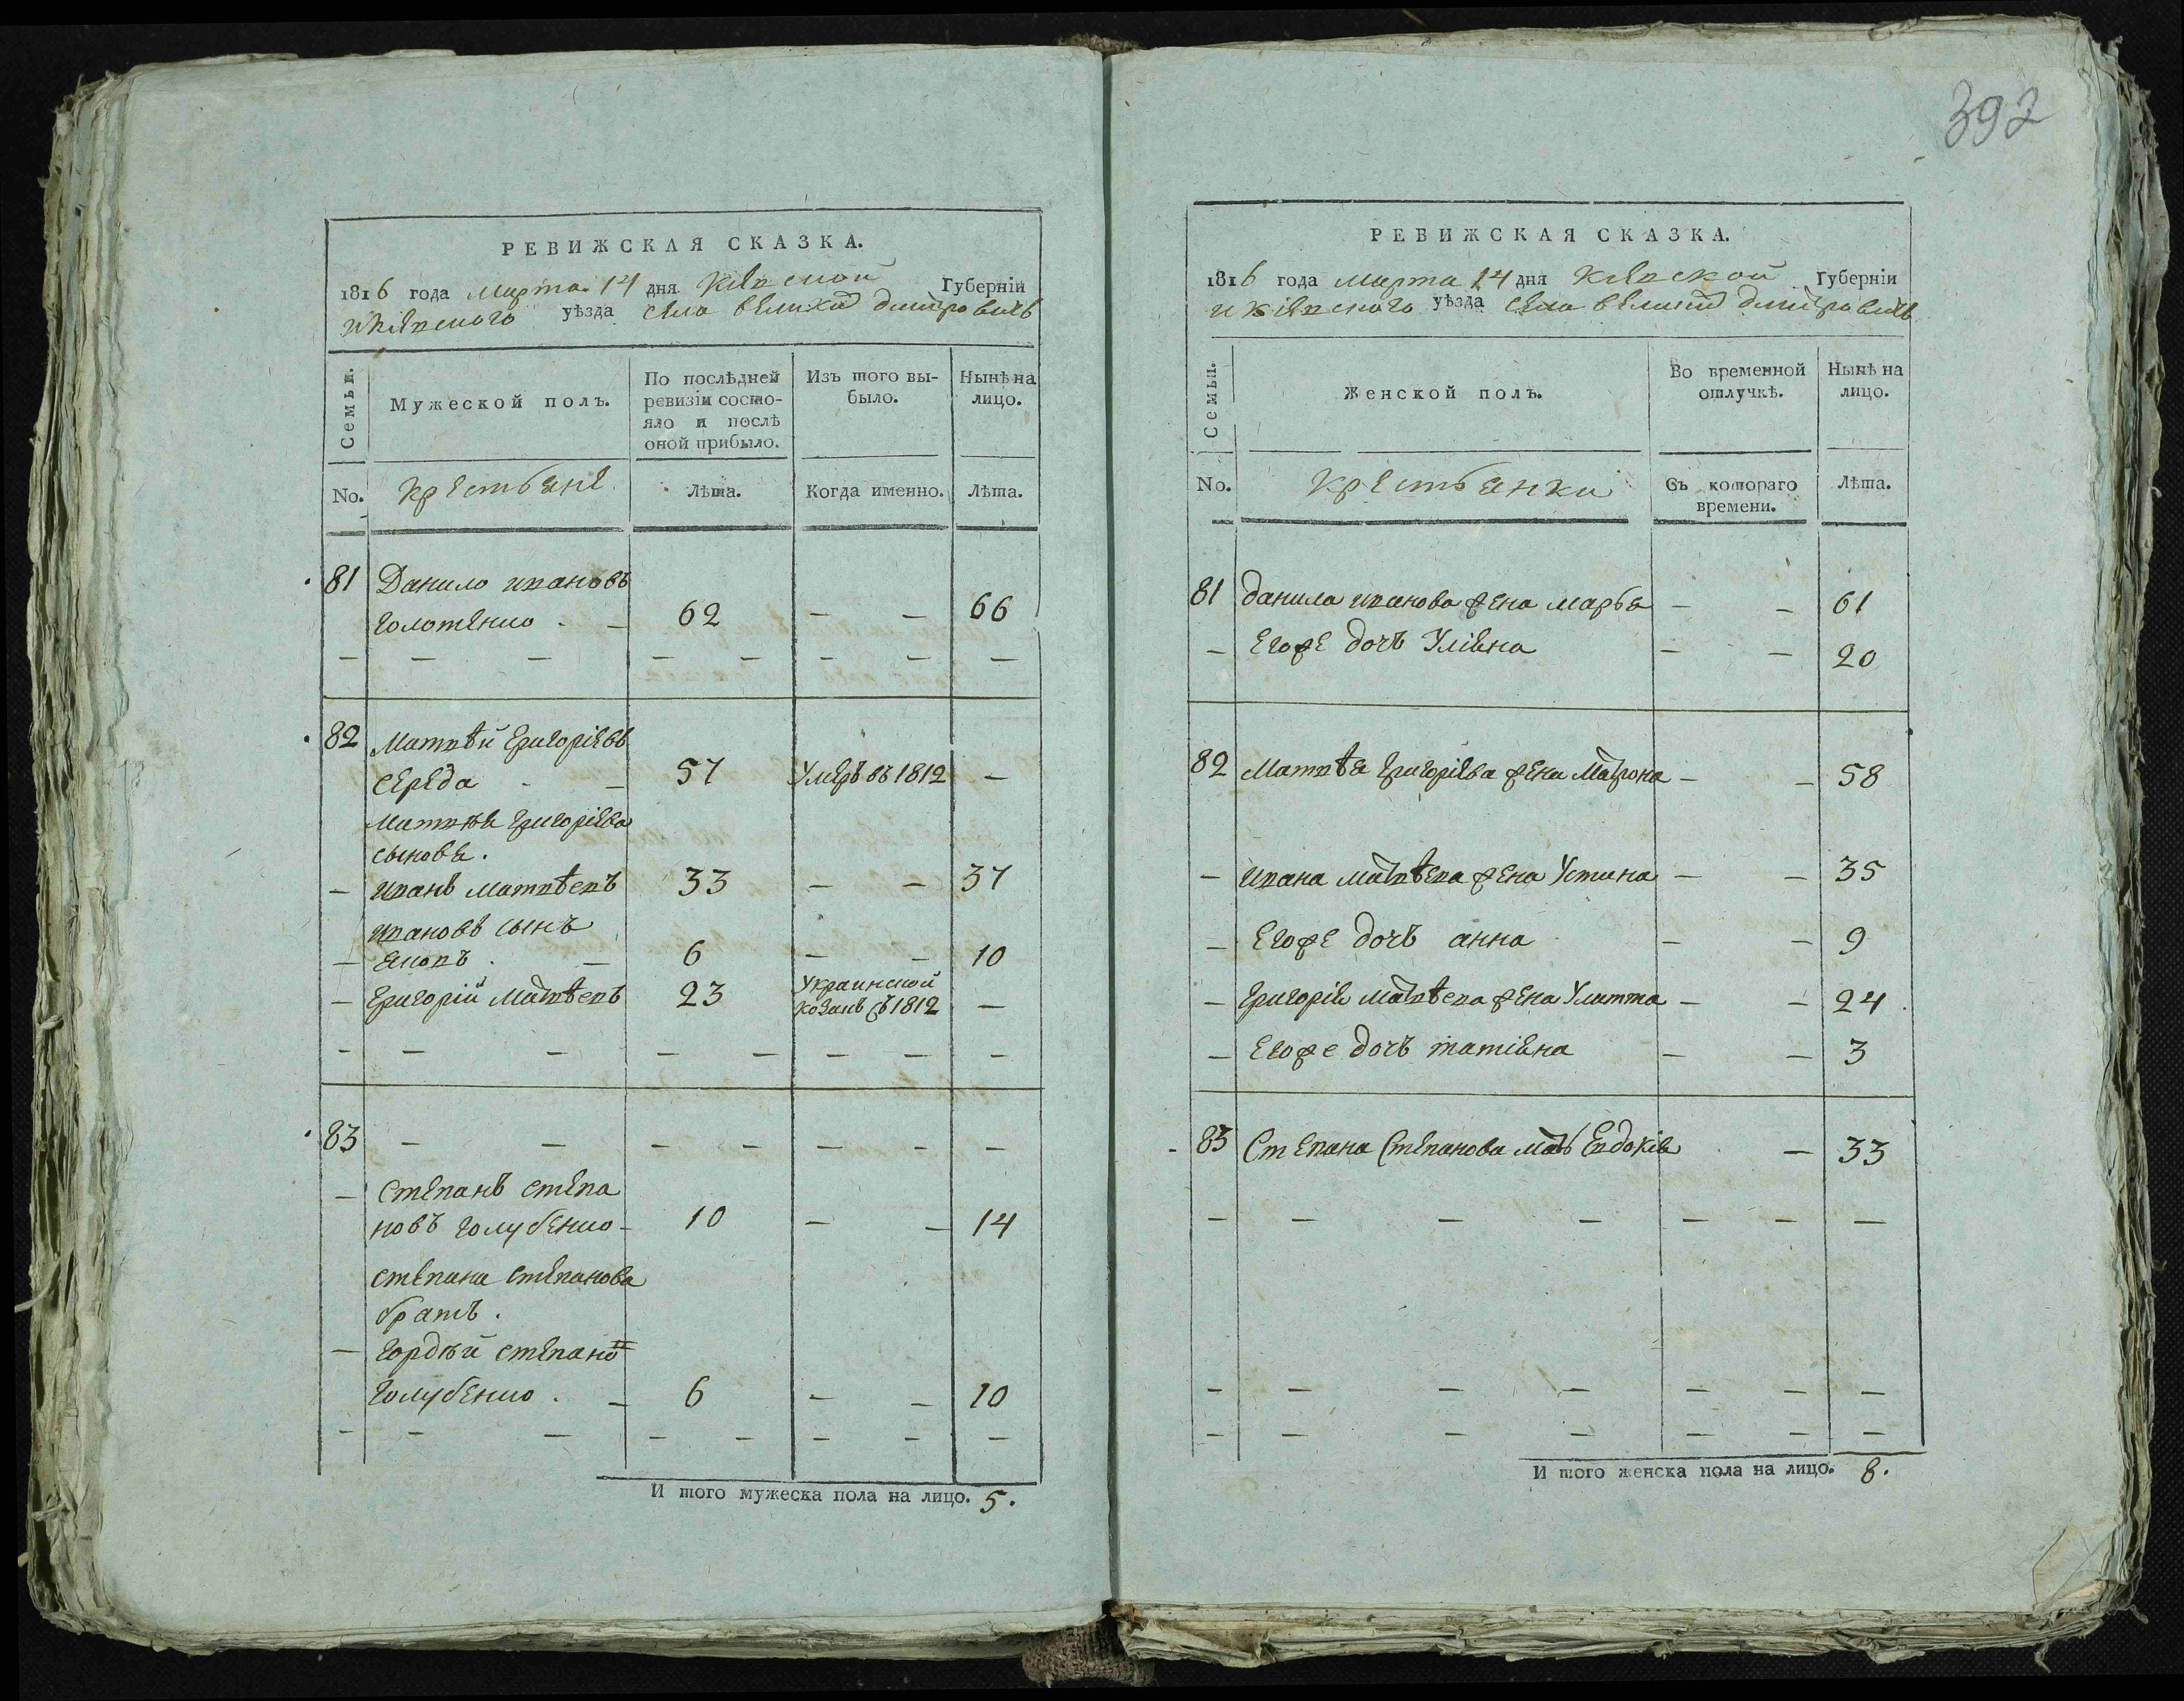 РЕВИЖСКАЯ СКАЗКА.
1816 года Марта 14 дня Кіевской Губерніи
и Кіевского уѣзда села великид дмитровичъ
Семьи.
Мужеской полъ.
По послѣдней ревизіи состо-
яло и послѣ оной прибыло.
Изъ того вы-
было.
Нынѣ на
лицо.
No.
крестьяне
Лѣта.
Когда именно.
Лѣта.
81 Данило ивановъ
голотенко . — 62 — — 66
— — — — — — — —
82 Матвѣй григоріевъ
середа - — 57 Умеръ въ 1812 —
Матвѣя григоріева
сыновя .
— иванъ матвѣевъ 33 — — 37
ивановъ сынъ
— яковъ . — 6 — — 10
— григорій матвѣевъ 23 Украинской
козакъ съ 1812 —
— — — — — — — —
83 — — — — — — —
— степанъ степа
новъ голубенко — 10 — — 14
степана степанова
братъ .
— гордѣй степано
голубенко . — 6 — — 10
— — — — — — — —
И того мужеска пола на лицо. 5.
392
РЕВИЖСКАЯ СКАЗКА.
1816 года марта 14 дня Кіевской Губерніи
и кіевского уѣзда села дмитровичъ
Семьи.
Женской полъ.
Во временной
отлучкѣ.
Нынѣ на
лицо.
No.
крестьянки
Съ котораго
времени.
Лѣта.
81 данила иванова жена марья — — 61
— егоже дочъ Уліяна — — 20
82 Матвѣя григоріева жена Матрона — — 58
— ивана матвѣева жена Устина — — 35
— егоже дочъ анна — — 9
— григорія матвѣева жена Улитта — — 24
— егоже дочъ татіяна — — 3
83 Степана Степанова мать Евдокія — 33
— — — — — — —
— — — — — — —
— — — — — — —
И того женска пола на лицо. 8.